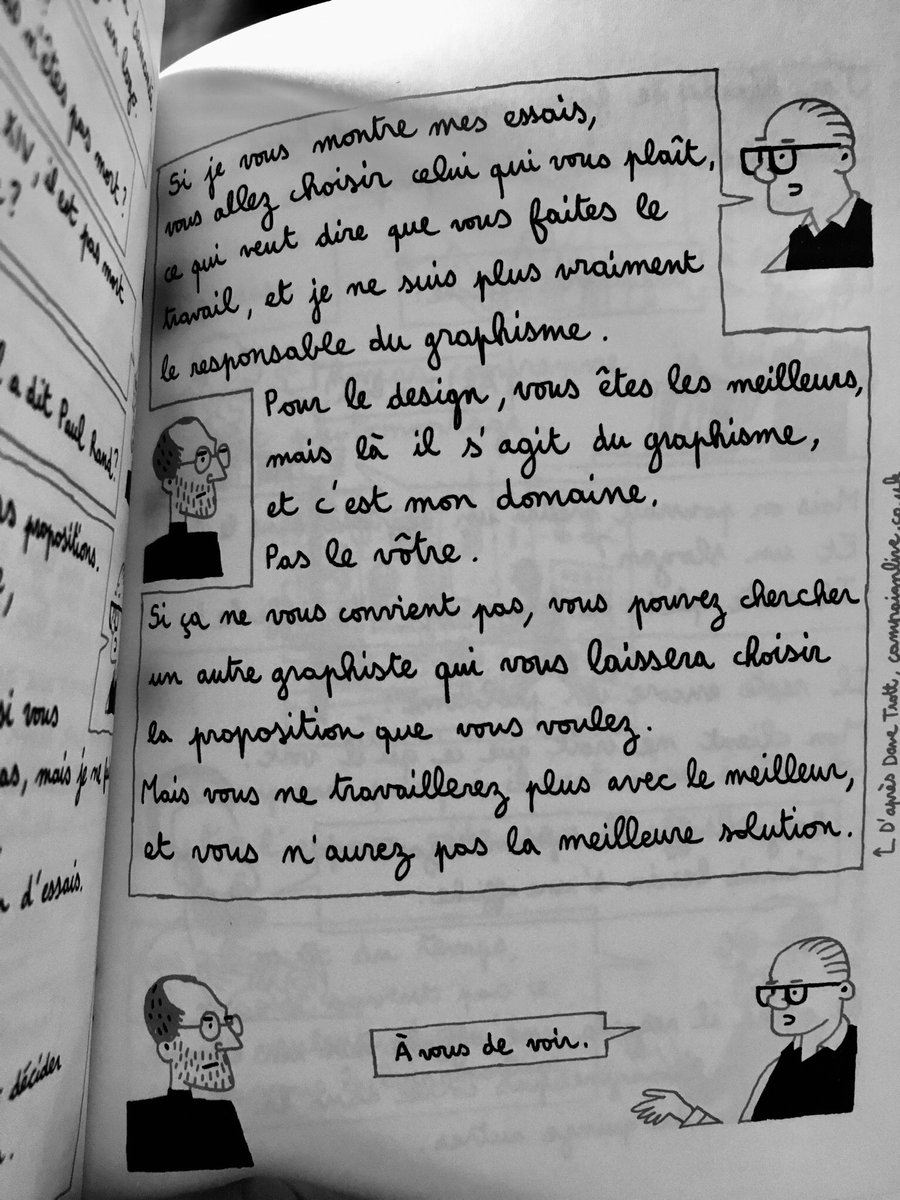 un logo
n'êtes pas mort ?
XIV, il est pas mort
a dit Paul Rand ?
propositions.
si vous
as, mais je ne p
d'essais.
décider
Si je vous montre mes essais,
vous allez choisir celui qui vous plaît,
ce qui veut dire que vous faites le
travail, et je ne suis plus vraiment
le responsable du graphisme.
Pour le design, vous êtes les meilleurs,
mais là il s'agit du graphisme,
et c'est mon domaine.
Pas le vôtre.
Si ça ne vous convient pas, vous pouvez chercher
un autre graphiste qui vous laissera choisir
la proposition que vous voulez.
Mais vous ne travaillerez plus avec le meilleur,
et vous n'aurez pas la meilleure solution.
D'après Dave Trott, campaignlive.co.uk
À vous de voir.